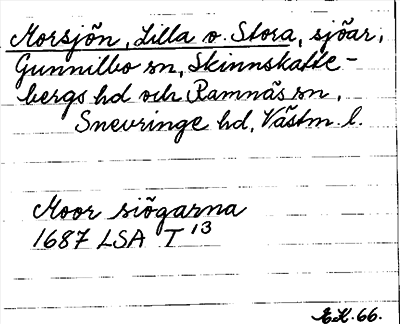 Morsjön, Lilla o. Stora, sjöar,
Gunnilbo sn, Skinnskatte-
bergs hd och Ramnäs sn,
Snevringe hd, Västm. l.
Moor siögarna
1687 LSA T 13
E.H. 66.